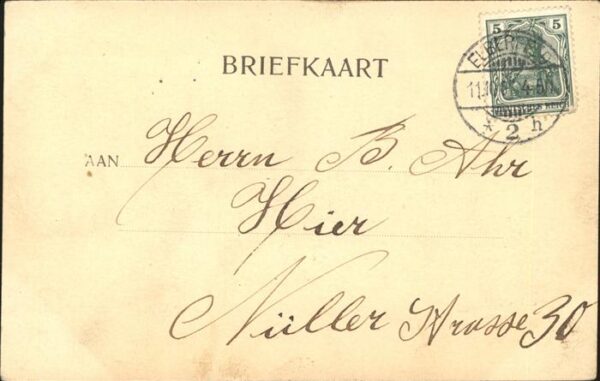 BRIEFKAART
5 5
ELBERFELD
4-5N
* 2 h
AAN Herrn B. Ahr
Hier
Nüller Strasse 30